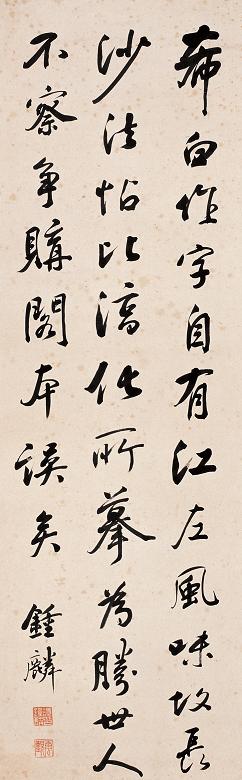 希白作字自有江左風味故長
沙法帖比淳化所摹為勝世人
不察爭購閣本誤矣 鍾麟